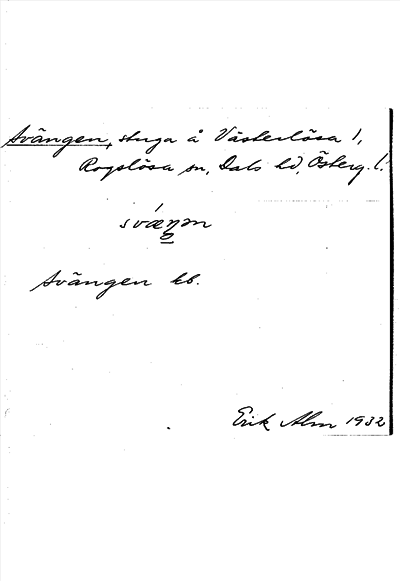 Svängen, stuga å Västerlösa l,
Rogslösa sn, Dals hd, Österg. l.
Svängen kb.
Erik Alm 1932